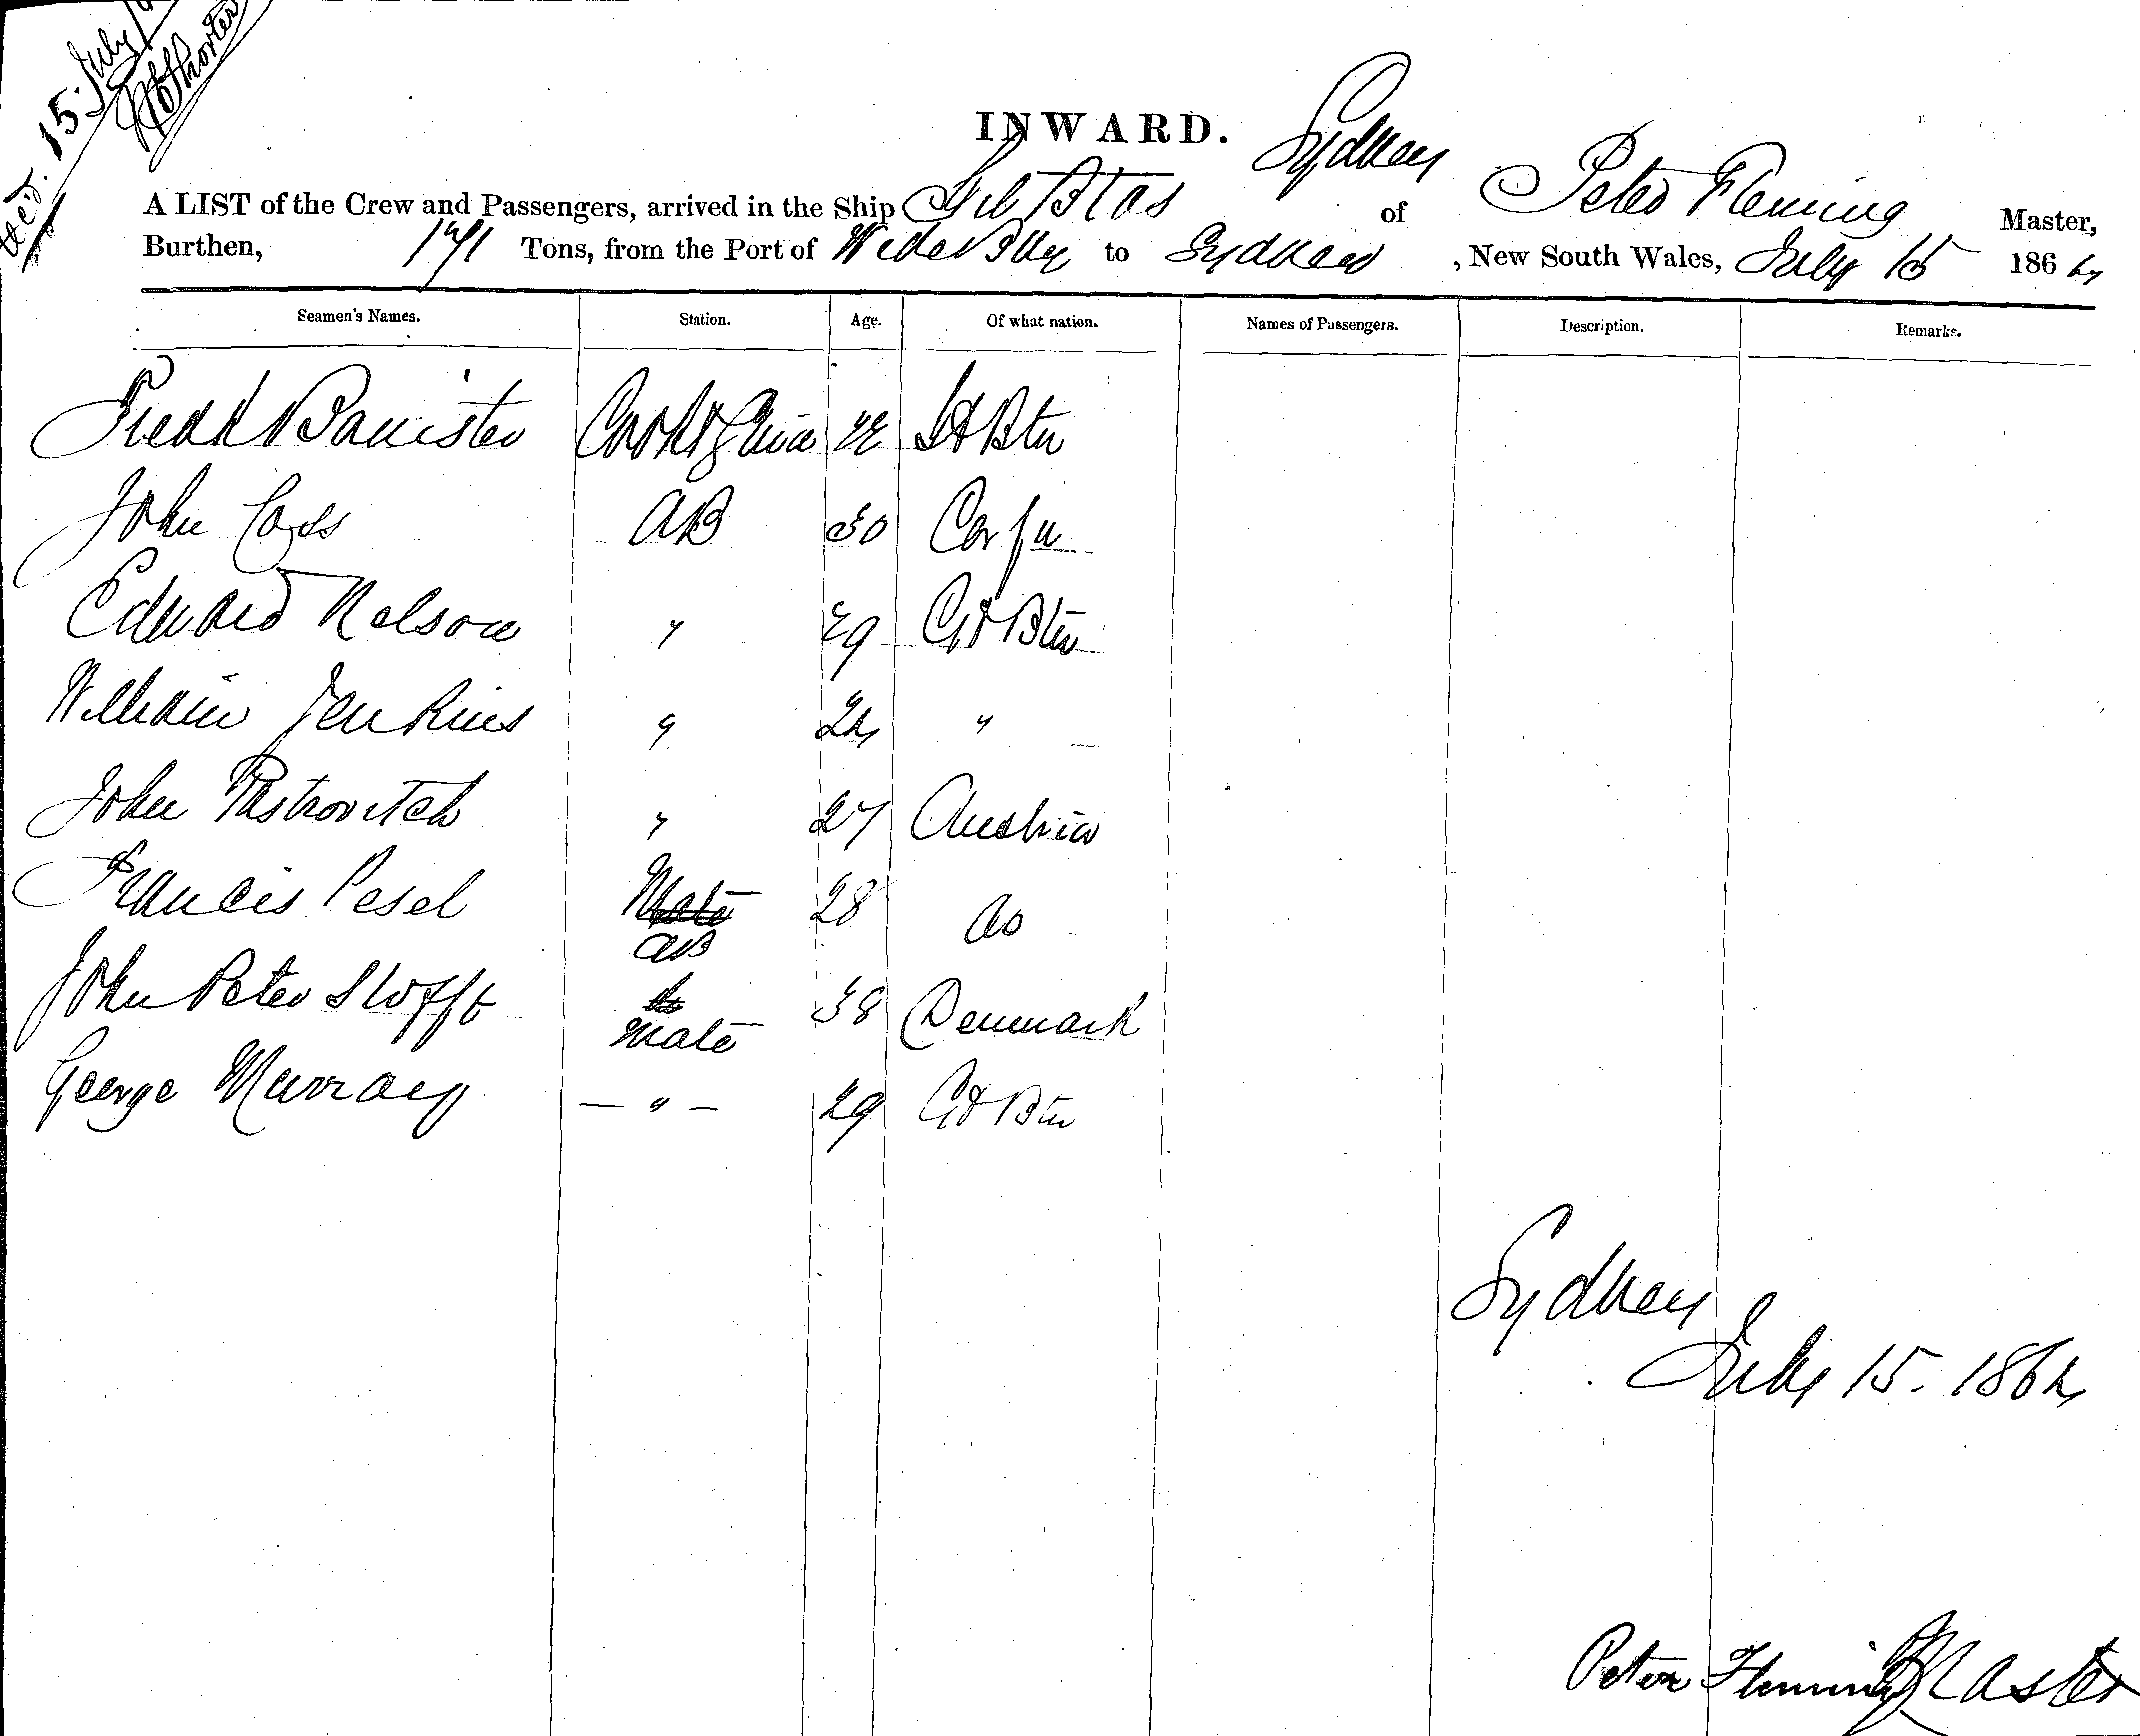 15 July
INWARD.
Sydney
A LIST of the Crew and Passengers, arrived in the Ship Gil Blas of Peter Fleming Master,
Burthen, Tons, from the Port of Wide Bay to Sydney, New South Wales, July 15 1864
Seamen's Names. Station. Age. Of what nation. Names of Passengers. Description. Remarks.
Fredk Banister Cook & 22 Gt Btn
John AB 30 Corfu
Edward Nelson " 29 Gt Btn
William Jenkins " 24 "
John Pastrovitch " 27 Austria
Francis Pesel Mate 28 do
AB
John Peter 38 Denmark
Mate
George Murray — " — 29 Gt Btn
Sydney
July 15. 1864
Peter Fleming Master